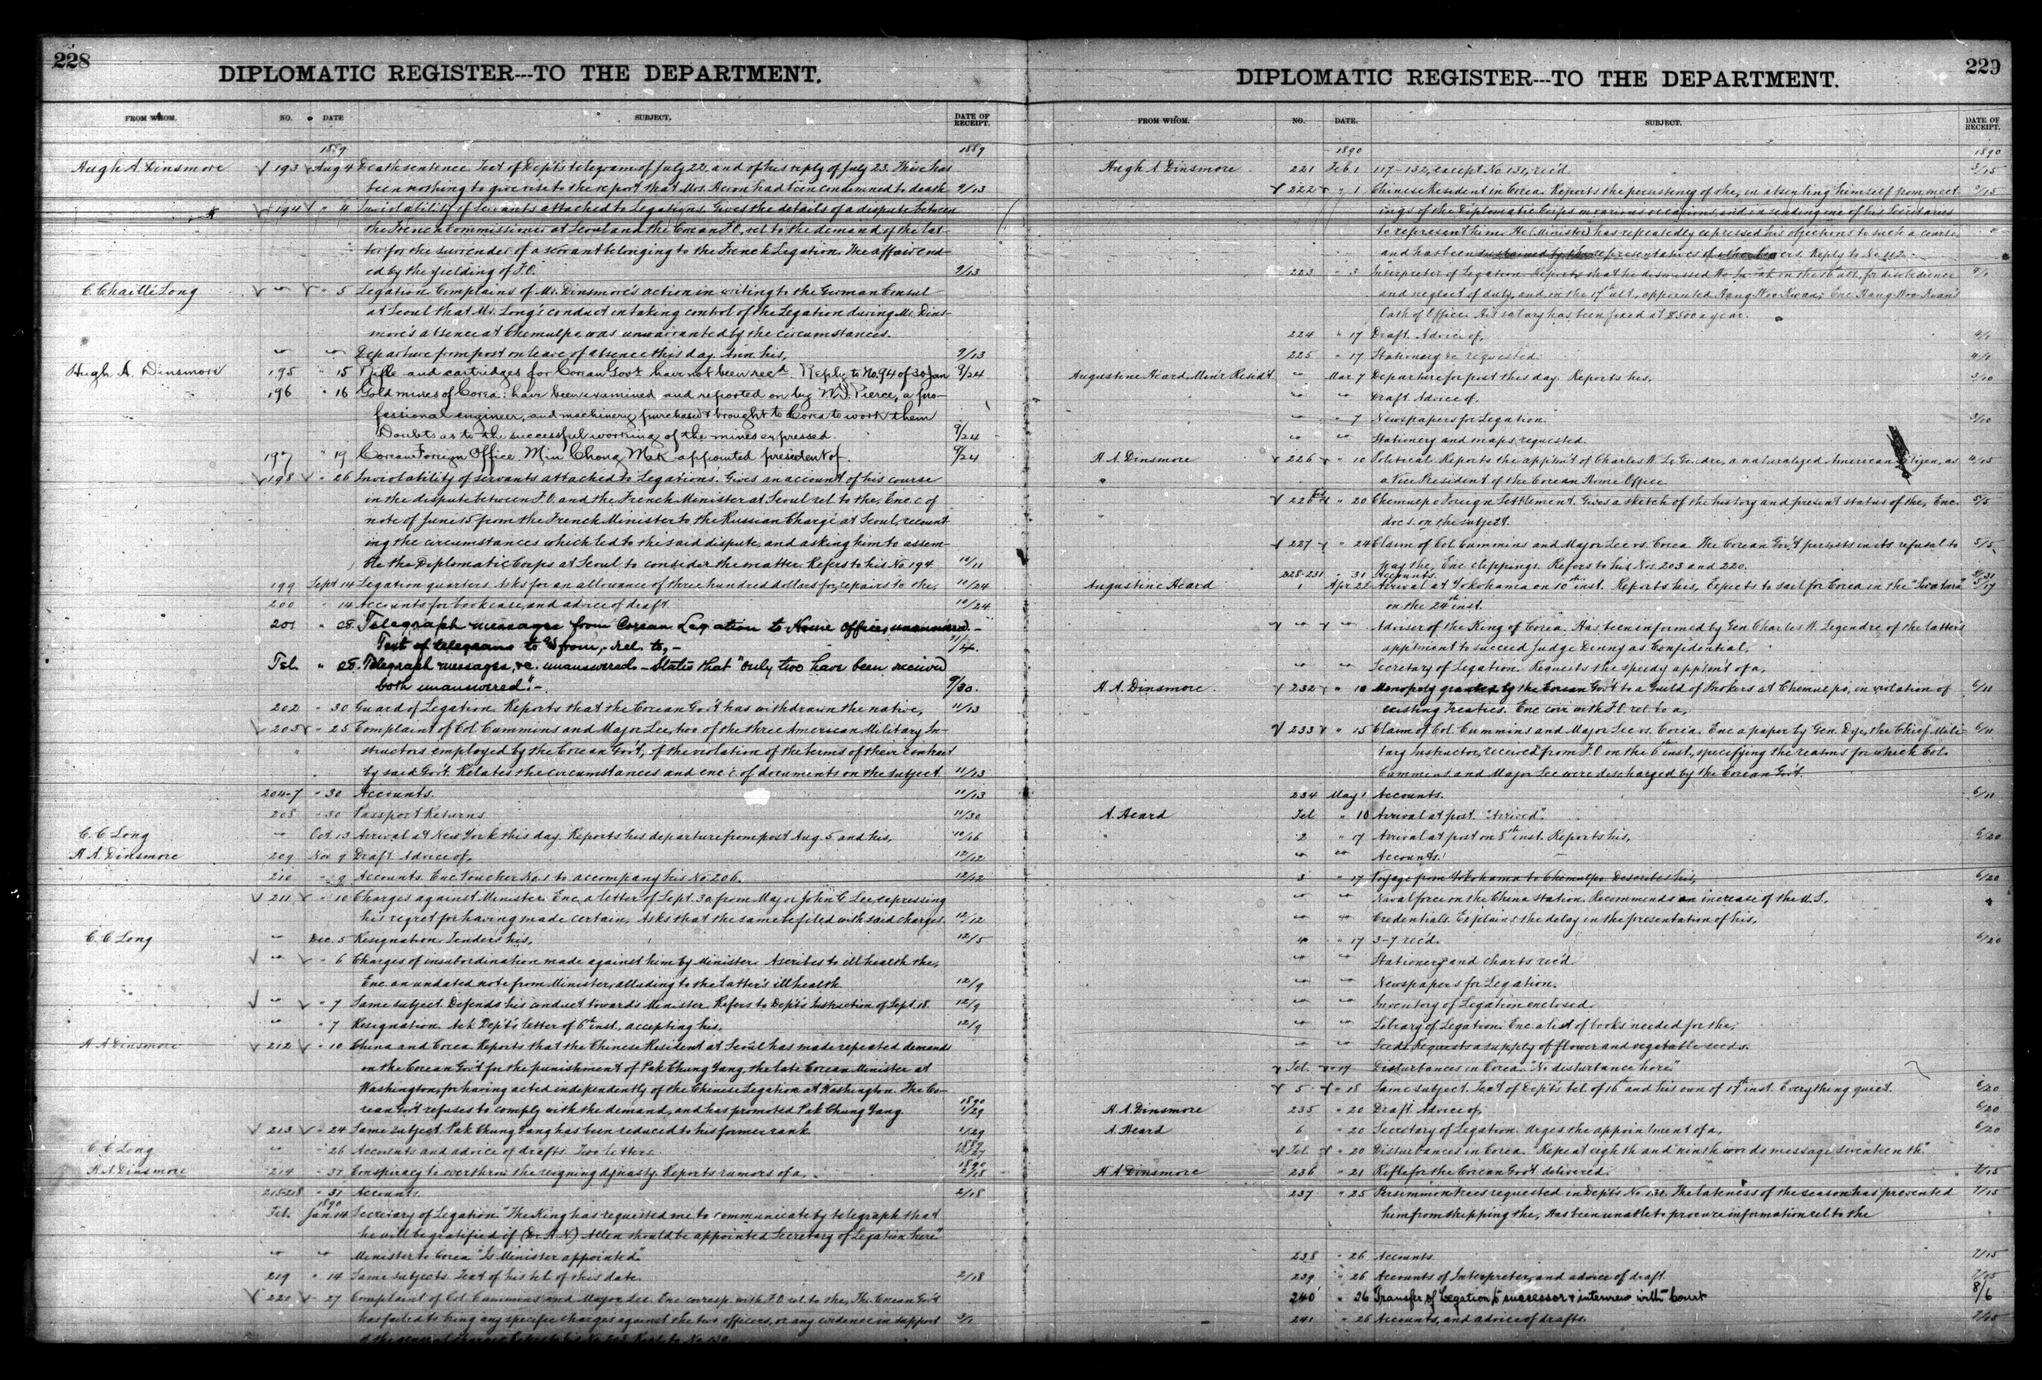 228
DIPLOMATIC REGISTER---TO THE DEPARTMENT.
FROM WHOM. NO. DATE SUBJECT. DATE OF RECEIPT.
1889 1889
Hugh A Dinsmore 193 Aug 4 Death sentence. Text of Dep't's telegram of July 22, and of his reply of July 23. There has
been nothing to give rise to the report that Mrs. Heron had been condemned to death 9/13
194 " 4 Inviolability of servants attached to Legations. Gives the details of a dispute between
the French Commissioner at Seoul and the Corean F.O. rel. to the demand of the lat-
ter for the surrender of a servant belonging to the French Legation. The affair end-
ed by the yielding of F.O. 9/13
C. Chaillé Long " " 5 Legation. Complains of Mr. Dinsmore's action in writing to the German Consul
at Seoul that Mr. Long's conduct in taking control of the Legation during Mr. Dins-
more's absence at Chemulpo, was unwarranted by the circumstances.
" " Departure from post on leave of absence this day. Ann. his, 9/13
Hugh A. Dinsmore 195 " 15 Rifle and cartridges for Corean Gov't have not been rec'd. Reply to No. 94 of 30 Jan 9/24
196 " 16 Gold mines of Corea: have been examined and reported on by W. J. Pierce, a pro-
fessional engineer, and machinery purchased & brought to Corea to work them
Doubts as to the successful working of the mines expressed. 9/24
197 " 19 Corean Foreign Office. Min Chong Mok appointed president of. 9/24
198 " 26 Inviolability of servants attached to Legations. Gives an account of his course
in the dispute between F.O. and the French Minister at Seoul rel. to the. Enc. c. of
note of June 15 from the French Minister to the Russian Chargé at Seoul, recount
ing the circumstances which led to the said dispute, and asking him to assem-
ble the Diplomatic Corps at Seoul to consider the matter. Refers to his No 194 10/11
199 Sept 14 Legation quarters. Asks for an allowance of three hundred dollars for repairs to the, 10/24
200 " 14 Accounts for bookcase, and advice of draft. 10/24
201 " 28. Telegraph messages from Corean Legation to Home Office, unanswered.
Text of telegrams to & from, rel. to,- 11/4.
Tel. " 28. Telegraph messages, &c. unanswered. - States that "only two have been received
both unanswered".- 9/30.
202 " 30 Guard of Legation. Reports that the Corean Gov't has withdrawn the native, 11/13
203 " 25 Complaint of Col. Cummins and Major Lee, two of the three American Military In-
structors employed by the Corean Gov't, of the violation of the terms of their contract
by said Gov't. Relates the circumstances and enc. c. of documents on the subject 11/13
204-7 " 30 Accounts. 11/13
208 " 30 Passport Returns 11/30
C. C. Long " Oct. 13 Arrival at New York this day. Reports his departure from post Aug. 5 and his, 10/16
H. A. Dinsmore 209 Nov. 9 Draft. Advice of, 12/12
210 " 9 Accounts. Enc. Voucher No. 1 to accompany his No. 206. 12/12
211 " 10 Charges against Minister. Enc. a letter of Sept. 30 from Major John G. Lee expressing
his regret for having made certain. Asks that the same be filed with said charges 12/12
C. C. Long " Dec. 5 Resignation. Tenders his, 12/5
" " 6 Charges of insubordination made against him by Minister. Ascribes to ill health the,
Enc. an undated note from Minister, alluding to the latter's ill health 12/9
" " 7 Same subject. Defends his conduct towards Minister. Refers to Dep't's Instruction of Sept. 18. 12/9
" " 7 Resignation. Ack. Dep't's letter of 6th inst. accepting his. 12/9
H. A. Dinsmore 212 " 10 China and Corea. Reports that the Chinese Resident at Seoul has made repeated demands
on the Corean Gov't for the punishment of Pak Chung Yang, the late Corean Minister at
Washington, for having acted independently of the Chinese Legation at Washington. The Co-
rean Gov't refuses to comply with the demand, and has promoted Pak Chung Yang 1890 1/29
213 " 24 Same subject. Pak Chung Yang has been reduced to his former rank 1/29
C. C. Long " " 26 Accounts and advice of drafts. Two letters 1889 12/27
H. A. Dinsmore 214 " 31 Conspiracy to overthrow the reigning dynasty. Reports rumors of a, 1890 2/18
215-218 " 31 Accounts. 2/18
1890
Tel. Jan 14 Secretary of Legation. "The King has requested me to communicate by telegraph that
he will be gratified if (Dr. A. N.) Allen should be appointed Secretary of Legation here"
" " Minister to Corea "Is Minister appointed"
219 " 14 Same subjects. Text of his tel. of this date. 2/18
220 " 27 Complaint of Col. Cummins and Major Lee. Enc. corresp. with F.O. rel. to the. The Corean Gov't
has failed to bring any specific charges against the two officers, or any evidence in support
of the general charges. Refers to his No 203. Reply to No 130.
229
DIPLOMATIC REGISTER---TO THE DEPARTMENT.
FROM WHOM. NO. DATE. SUBJECT. DATE OF RECEIPT.
1890 1890
Hugh A Dinsmore 221 Feb 1 117-132, except No 131, rec'd. 3/15
222 " 1 Chinese Resident in Corea. Reports the persistency of the, in absenting himself from meet
ings of the Diplomatic Corps on various occasions, and in sending one of his Secretaries
to represent him. He (Minister) has repeatedly expressed his objections to such a course,
and has been sustained by the representatives of other Powers. Reply to No 112.
223 " 3 Interpreter of Legation. Reports that he dismissed on the ult. for disobedience 4/1
and neglect of duty, and on the 17th ult., appointed Kang Woo Kwan; Enc. Kang Woo Kwan's
Oath of Office. His salary has been fixed at $500 a year.
224 " 17 Draft. Advice of, 4/1
225 " 17 Stationery &c requested. 4/1
Augustine Heard, Min'r Resid't " Mar 7 Departure for post this day. Reports his, 3/10
" " Draft. Advice of.
" " 7 Newspapers for Legation. 3/10
" " Stationery and maps, requested.
H. A. Dinsmore 226 " 10 Political. Reports the app'm't of Charles W. Le Gendre, a naturalized American citizen, as 4/15
a Vice President of the Corean Home Office
226 " 20 Chemulpo Foreign Settlement. Gives a sketch of the history and present status of the, Enc. 5/5
docs. on the subject.
227 " 24 Claim of Col. Cummins and Major Lee vs. Corea. The Corean Gov't persists in its refusal to 5/5
pay the, Enc. clippings. Refers to his Nos. 203 and 220.
228-231 " 31 Accounts.
Augustine Heard 1 Apr 22 Arrival at Yokohama on 10th inst. Reports his, Expects to sail for Corea in the 5/17
on the 24th inst.
" " Adviser of the King of Corea. Has been informed by Gen. Charles W. Legendre, of the latter's
app'tment to succeed Judge Denny as Confidential,
" " Secretary of Legation. Requests the speedy app'm't of a,
H. A. Dinsmore. 232 " 10 Monopoly granted by the Corean Gov't to a Guild of Brokers at Chemulpo, in violation of 6/11
existing Treaties. Enc. corr. with F.O. rel. to a,
233 " 15 Claim of Col. Cummins and Major Lee vs. Corea. Enc. a paper by Gen. Dye, the Chief Mili- 6/11
tary Instructor, received from F.O. on the 6th inst, specifying the reasons for which Col.
Cummins and Major Lee were discharged by the Corean Gov't.
234 May 1 Accounts. 6/11
A. Heard Tel. " 10 Arrival at post. "Arrived".
2 " 17 Arrival at post on 8th inst. Reports his, 6/20
" " Accounts.
3 " 17 Voyage from Yokohama to Chemulpo. Describes his, 6/20
" " Naval force on the China station. Recommends an increase of the U.S.,
" " Credentials. Explains the delay in the presentation of his,
4 " 17 3-7 rec'd. 6/20
" " Stationery and charts rec'd.
" " Newspapers for Legation.
" " Inventory of Legation enclosed.
" " Library of Legation. Enc. a list of books needed for the,
Seeds. Requests a supply of flower and vegetable seeds.
Tel. " 17 Disturbances in Corea. "No disturbance here"
5 " 18 Same subject. Text of Dep't's tel. of 16th and his own of 17th inst. Everything quiet. 6/20
H. A. Dinsmore 235 " 20 Draft. Advice of, 6/20
A. Heard 6 " 20 Secretary of Legation. Urges the appointment of a, 6/20
Tel. " 20 Disturbances in Corea. "Repeat eighth and ninth words message seventeenth"
H. A. Dinsmore 236 " 21 Rifle for the Corean Gov't delivered. 7/15
237 " 25 Persimmon trees requested in Dep't's No 132. The lateness of the season has prevented 7/15
him from shipping the, Has been unable to procure information rel. to the
238 " 26 Accounts 7/15
239 " 26 Accounts of Interpreter, and advice of draft. 7/15
240 " 26 Transfer of Legation to successor & interview with Court 8/6
241 " 26 Accounts, and advice of drafts. 7/15